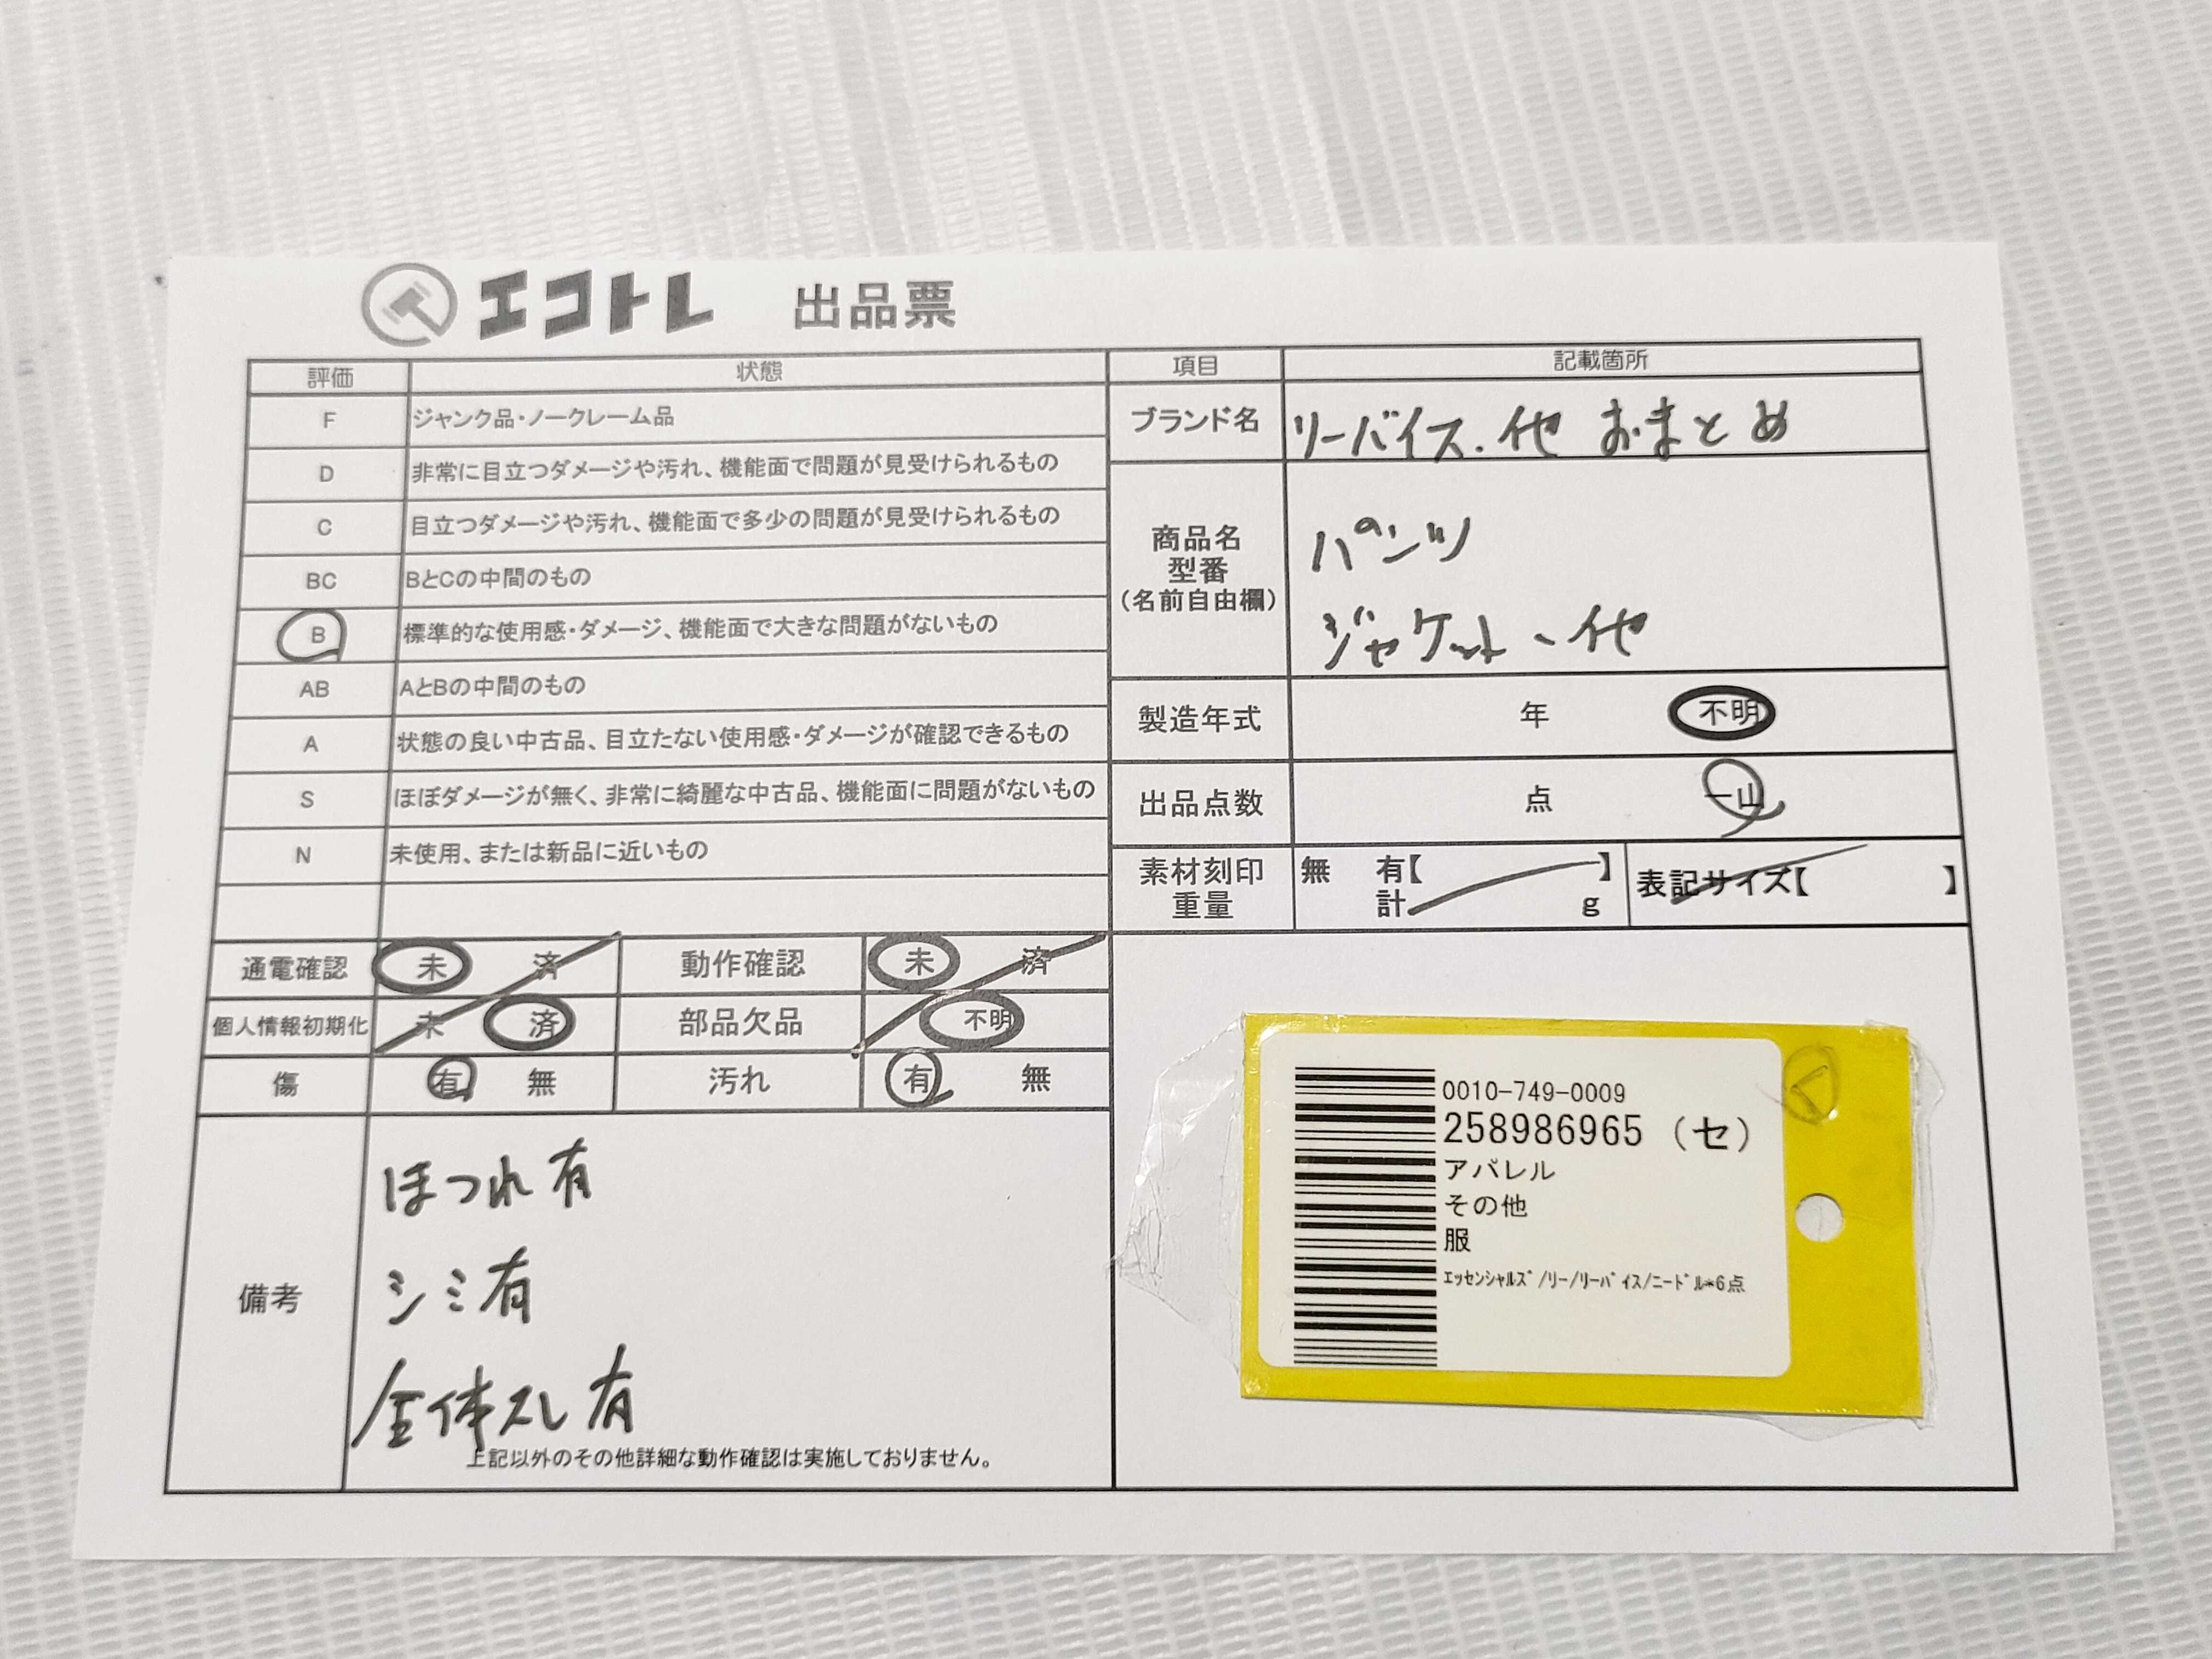 エコトレ 出品票
評価 状態
F ジャンク品・ノークレーム品
D 非常に目立つダメージや汚れ、機能面で問題が見受けられるもの
C 目立つダメージや汚れ、機能面で多少の問題が見受けられるもの
BC BとCの中間のもの
B 標準的な使用感・ダメージ、機能面で大きな問題がないもの
AB AとBの中間のもの
A 状態の良い中古品、目立たない使用感・ダメージが確認できるもの
S ほぼダメージが無く、非常に綺麗な中古品、機能面に問題がないもの
N 未使用、または新品に近いもの
通電確認 未 済 動作確認 未 済
個人情報初期化 未 済 部品欠品 不明
傷 有 無 汚れ 有 無
備考
ほつれ有
シミ有
全体スレ有
上記以外のその他詳細な動作確認は実施しておりません。
項目 記載箇所
ブランド名 リーバイス.他 おまとめ
商品名
型番
(名前自由欄)
パンツ
ジャケット、他
製造年式 年 不明
出品点数 点 一山
素材刻印
重量
無 有【 】
計 g
表記サイズ【 】
0010-749-0009
258986965 (セ)
アパレル
その他
服
ｴｯｾﾝｼｬﾙｽﾞ/ﾘｰ/ﾘｰﾊﾞｲｽ/ﾆｰﾄﾞﾙ*6点